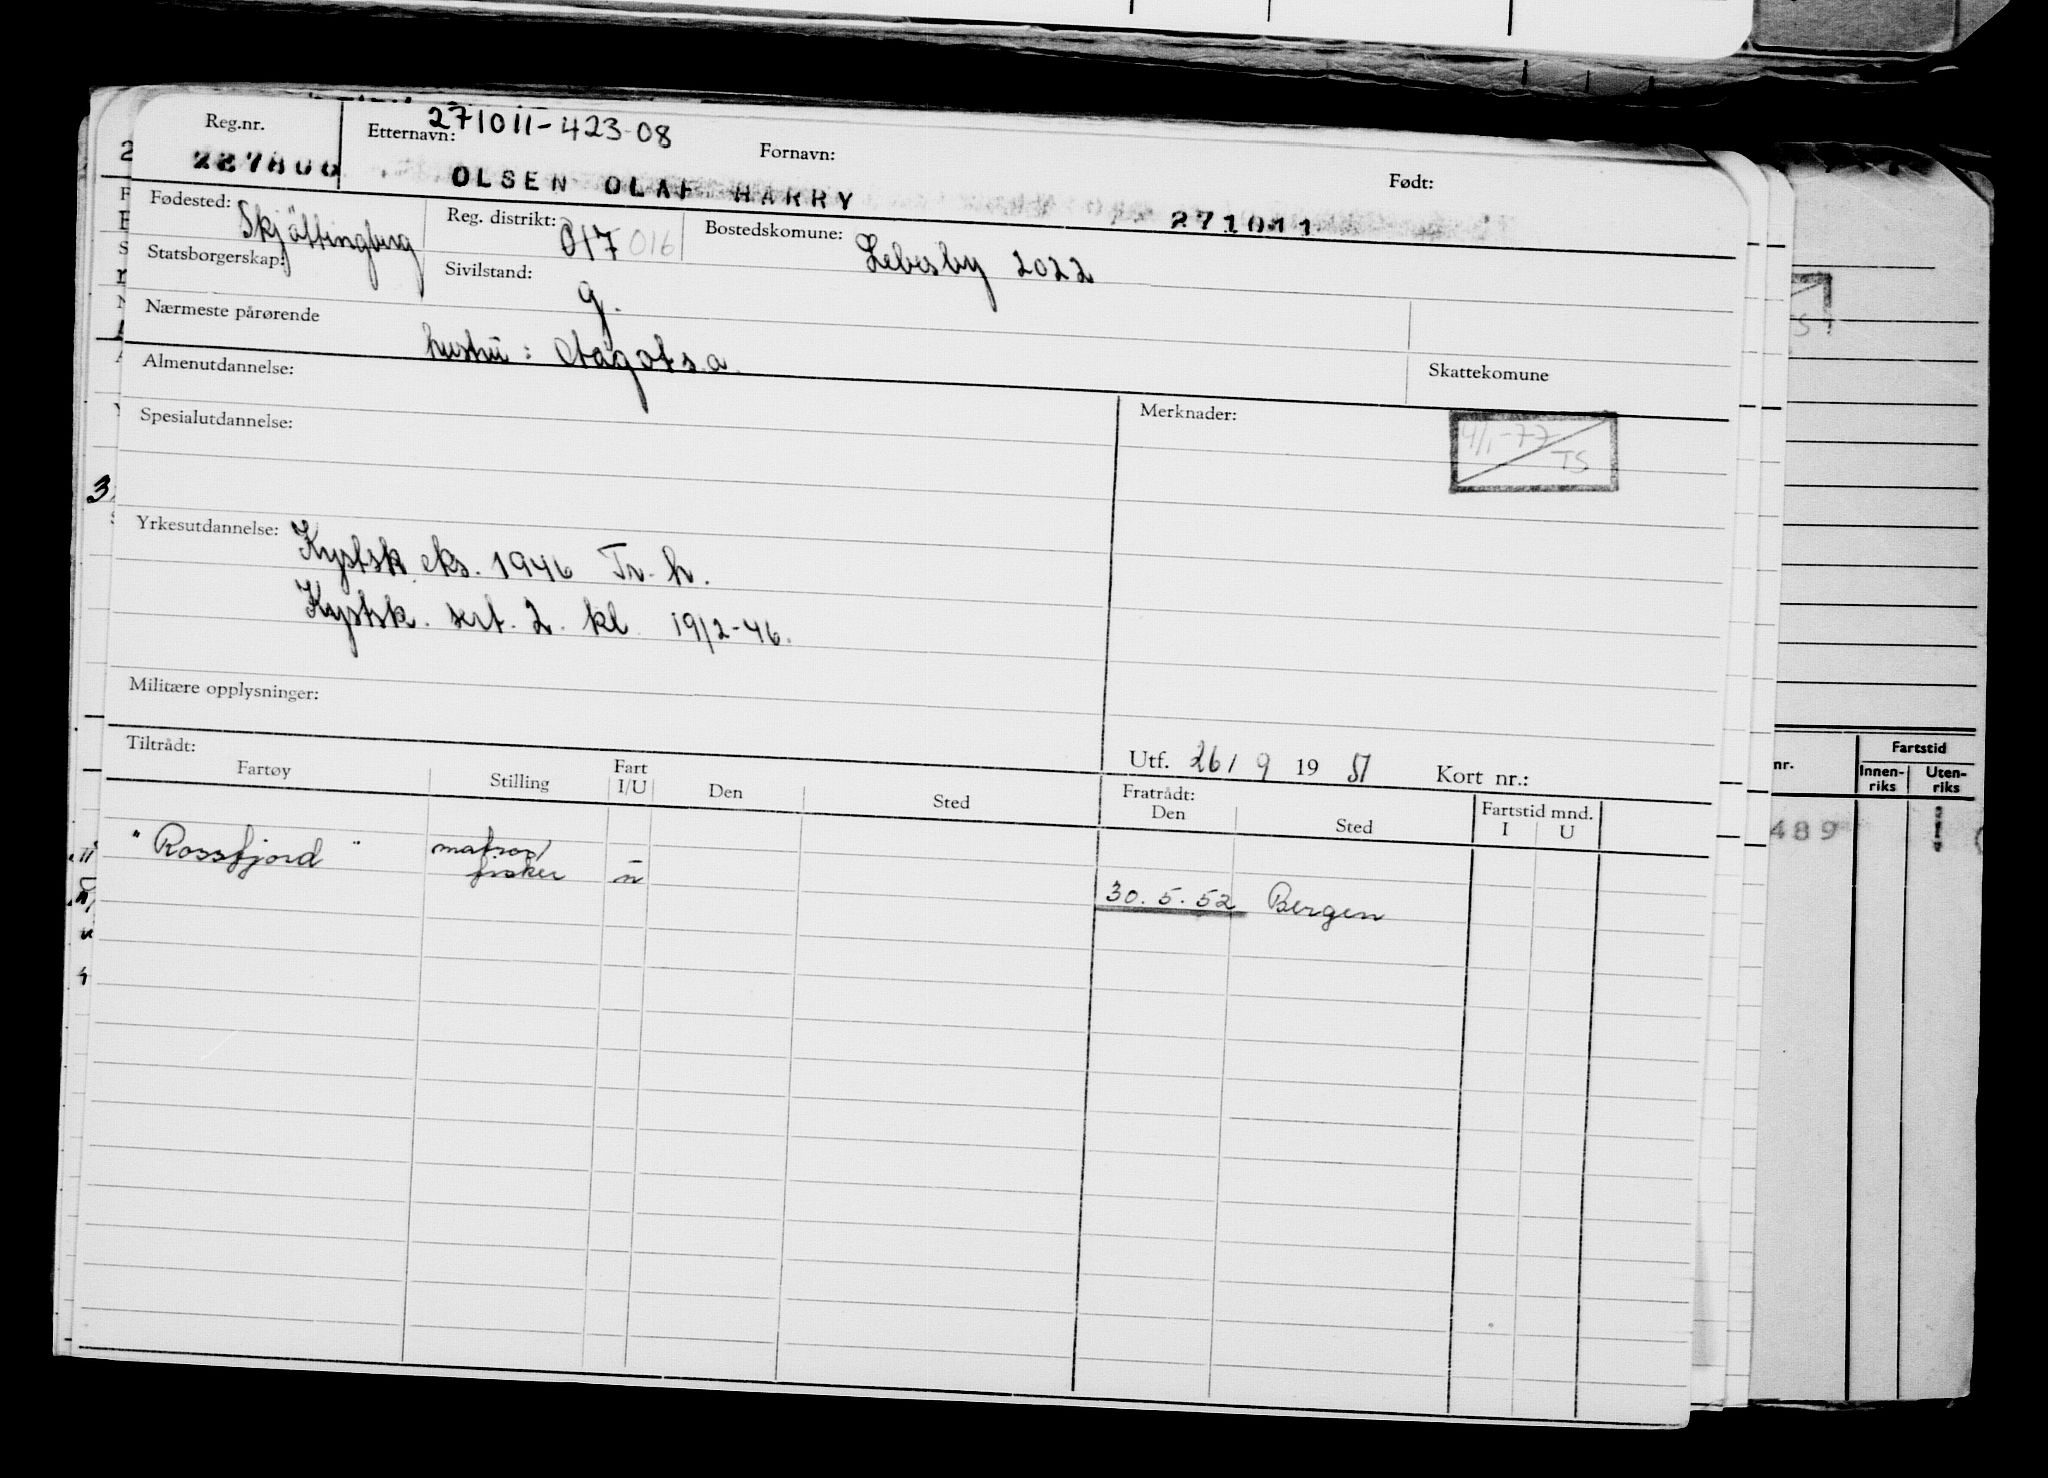 271011-423-08
Reg.nr. Etternavn: Fornavn: Født:
OLSEN OLAF HARRY 271011
Fødested: Reg. distrikt: 017 016 Bostedskomune: Lebesby 2022
Statsborgerskap: Sivilstand: g.
Nærmeste pårørende hustru:
Almenutdannelse: Skattekomune
Spesialutdannelse: Merknader: 4/1-77 TS
Yrkesutdannelse: Kystsk. eks. 1946 Tr. h.
Kystsk. sert. 2. kl. 19/2-46.
Militære opplysninger:
Tiltrådt: Utf. 26/9 1951 Kort nr.:
Fartøy Stilling Fart I/U Den Sted Fratrådt: Den Sted Fartstid mnd. I U
"Rossfjord" matros/
fisker u
30.5.52 Bergen
nr. Fartstid
Innen-riks Uten-riks
489
3